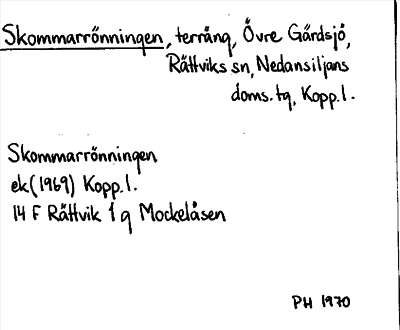 Skommarrönningen, terräng, Övre Gärdsjö,
Rättviks sn, Nedansiljans
doms. tg, Kopp. l.
Skommarrönningen
ek. (1969) Kopp. l.
14 F Rättvik 1 g Mockelåsen
PH 1970